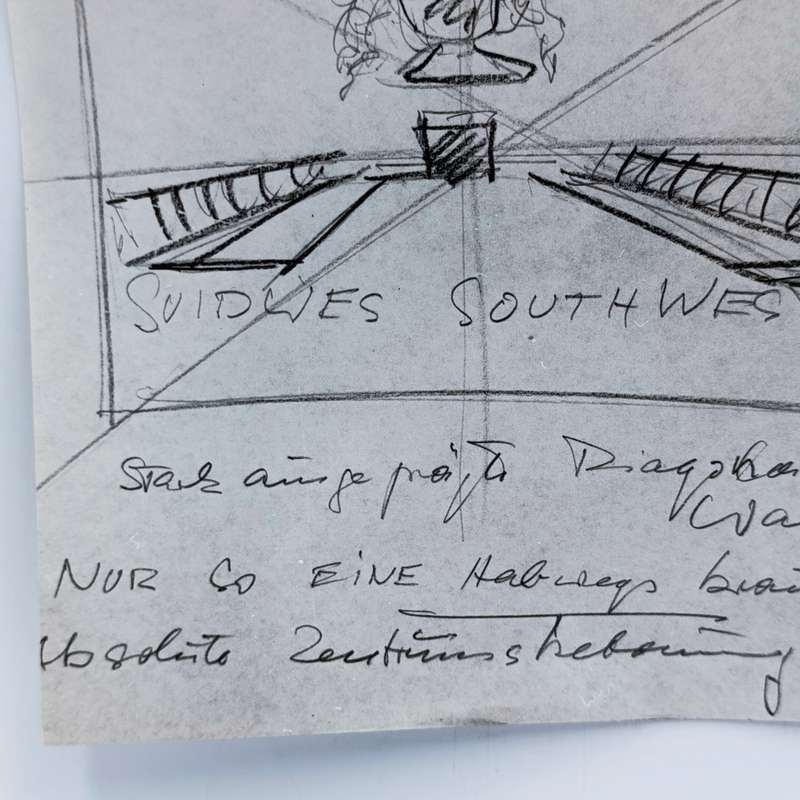 SUIDWES SOUTHWES
Stark ausgeprägte Diagona
NUR SO EINE Halbwegs brau
Absolute Zentrumsbetonung